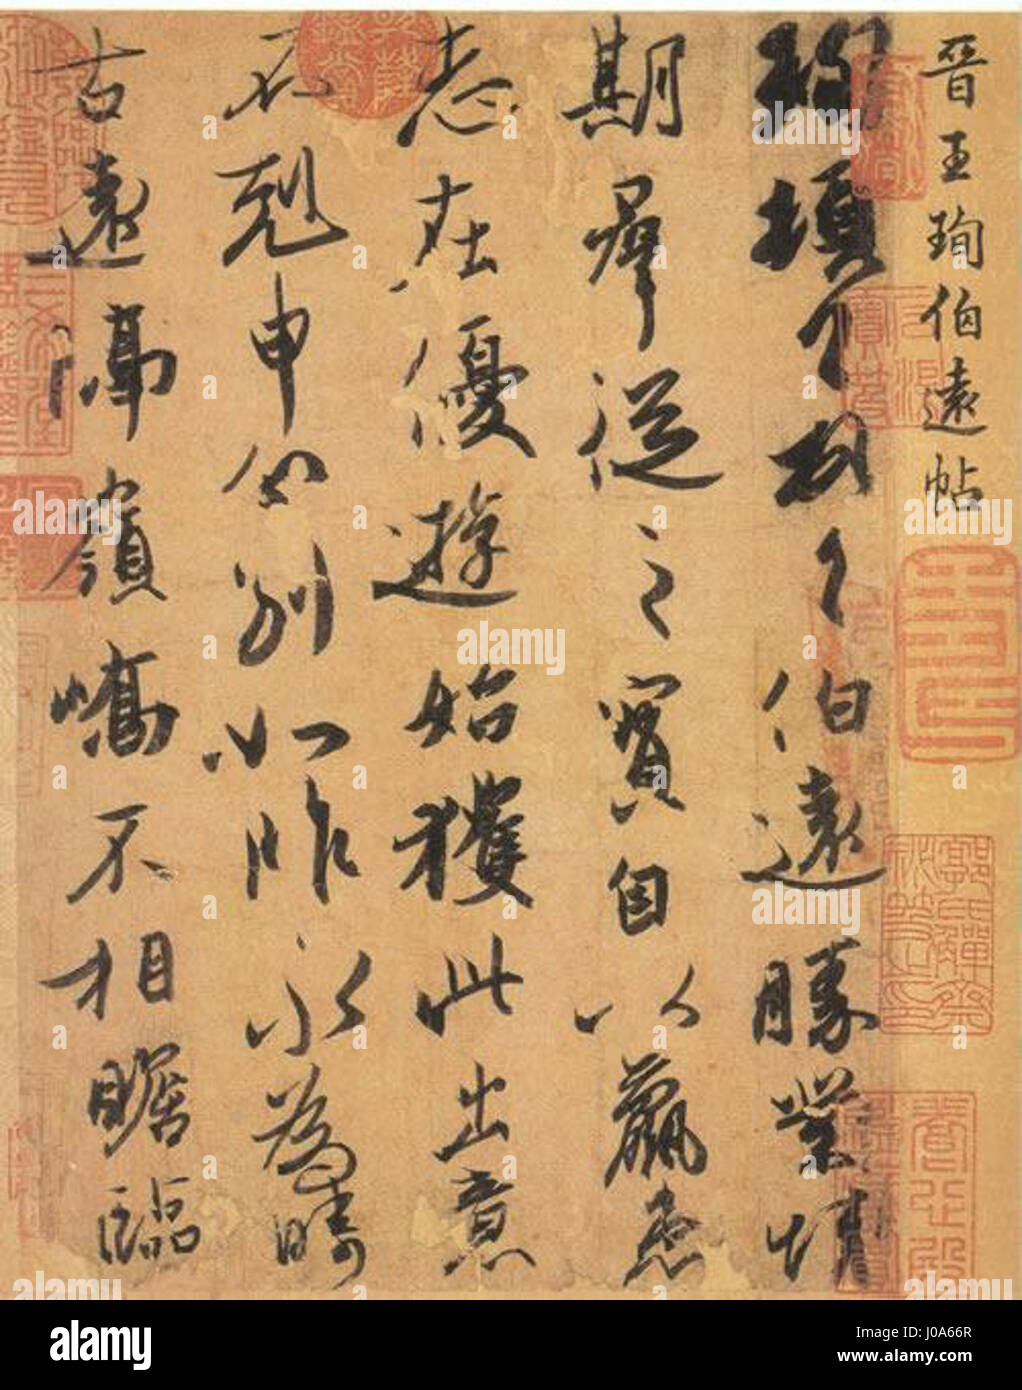 晉王珣伯遠帖
珣頓首頓首伯遠勝業情
期群從之寶自以羸患
志在優遊始獲此出意
不剋申分別如昨永為疇
古遠隔嶺嶠不相瞻臨
alamy
Image ID: J0A66R
www.alamy.com